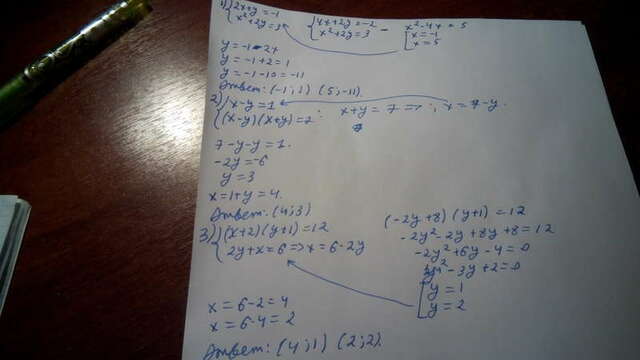 1) { 2x+y=-1
x²+2y=3
{ 4x+2y=-2
x²+2y=3 -
x²-4x=5
[ x=-1
x=5
y=-1-2x
y=-1+2=1
y=-1-10=-11
Ответ: (-1;1) (5;-11).
2) { x-y=1
(x-y)(x+y)=7 :
x+y=7 => ; x=7-y.
7-y-y=1.
-2y=-6
y=3
x=1+y=4.
Ответ: (4;3)
3) { (x+2)(y+1)=12
2y+x=6 => x=6-2y
(-2y+8)(y+1)=12
-2y²-2y+8y+8=12
-2y²+6y-4=0
y²-3y+2=0
[ y=1
y=2
x=6-2=4
x=6-4=2
Ответ: (4;1) (2;2).